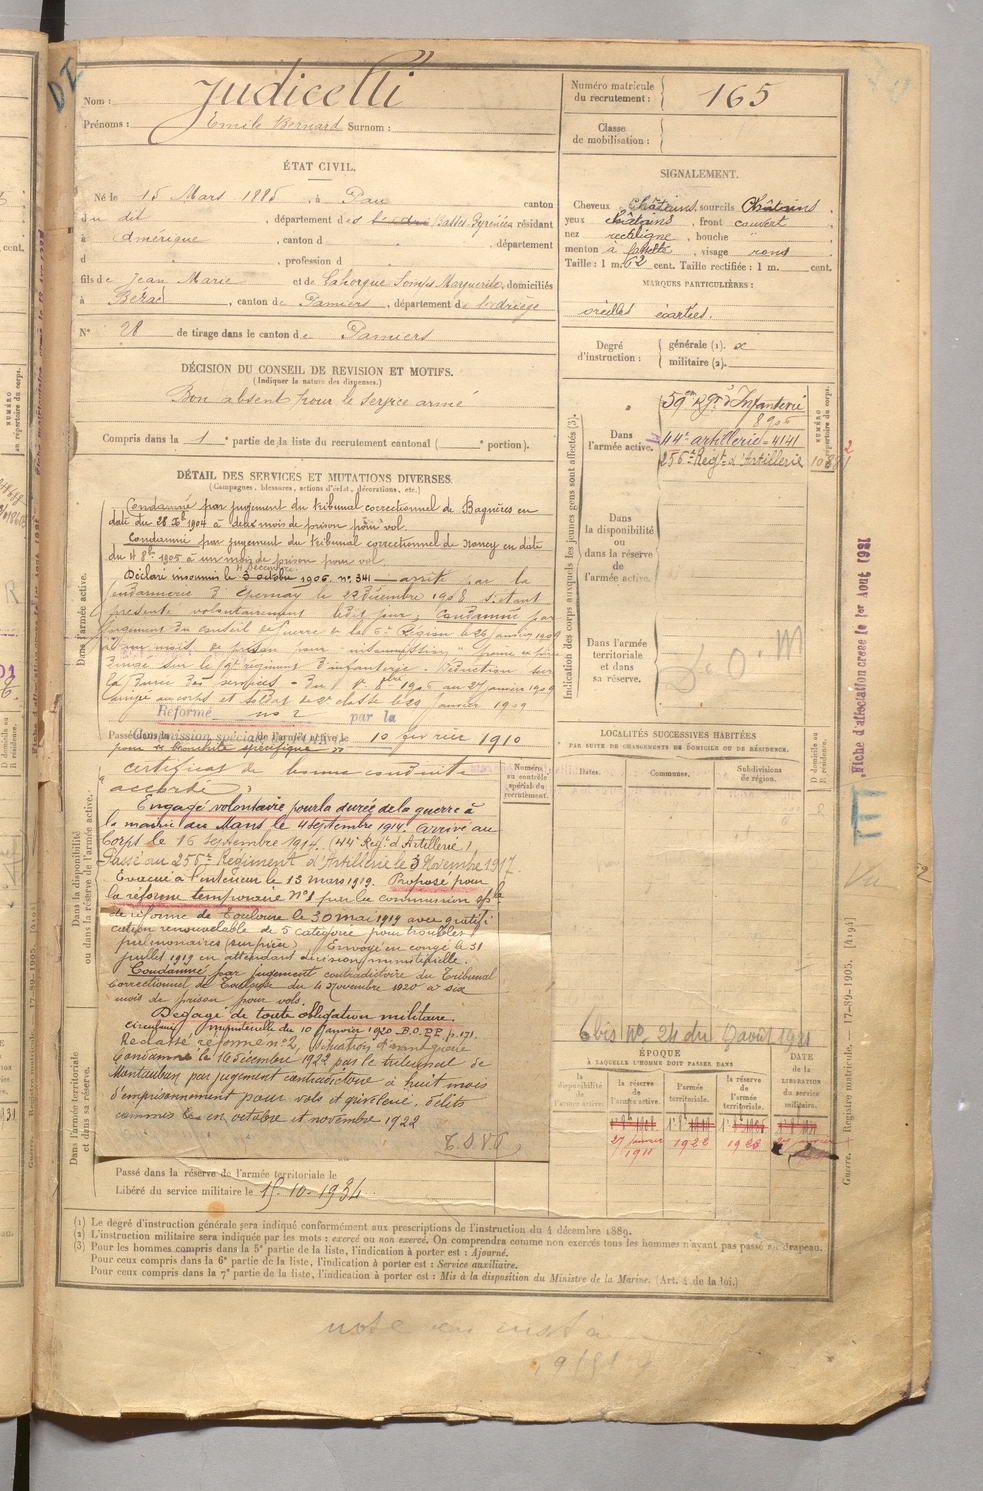 Nom : Judicelli
Prénoms : Emile Bernard Surnom :
Numéro matricule du recrutement : 165
Classe de mobilisation :
ÉTAT CIVIL.
Né le 15 Mars 1885, à Pau canton
du dit, département des Basses Pyrénées résidant
à Amérique, canton d , département
d , profession d
fils de Jean Marie et de Lahorgue Marguerite, domiciliés
à , canton de Pamiers, département de l'Ariège
N° 28 de tirage dans le canton de Pamiers
SIGNALEMENT.
Cheveux Châtains, sourcils Châtains
yeux châtains, front couvert
nez rectiligne, bouche "
menton à fossette, visage rond
Taille : 1 m. 62 cent. Taille rectifiée : 1 m. cent.
MARQUES PARTICULIÈRES :
oreilles écartées.
Degré d'instruction : générale (1).
militaire (2).
DÉCISION DU CONSEIL DE REVISION ET MOTIFS.
(Indiquer la nature des dispenses.)
Bon absent pour le service armé
Compris dans la 1e partie de la liste du recrutement cantonal ( e portion).
DÉTAIL DES SERVICES ET MUTATIONS DIVERSES.
(Campagnes, blessures, actions d'éclat, décorations, etc.)
Dans l'armée active.
Condamné par jugement du tribunal correctionnel de Bagnères en
date du 28 Xbre 1904 à deux mois de prison pour vol.
Condamné par jugement du tribunal correctionnel de Nancy en date
du 4 8bre 1905 à un mois de prison pour vol.
Déclaré insoumis le 3 octobre 1906. n° 341 — arrêté par la
gendarmerie d'Epernay le 22 Décembre 1908 s'étant
présenté volontairement ledit jour; Condamné par
jugement du conseil de Guerre de la 6e Région le 26 janvier 1909
à un mois de prison pour insoumission
dirigé sur le régiment d'infanterie. Déduction sur
la Durée des services - Du 8bre 1906 au 27 janvier 1909
arrivé au corps et soldat de 2e classe le 29 janvier 1909
Réformé n° 2 par la
Commission spéciale
Passé dans la de l'armée active le 10 février 1910
pour bronchite spécifique
certificat de bonne conduite
accordé
Dans la disponibilité ou dans la réserve de l'armée active.
Engagé volontaire pour la durée de la guerre à
la mairie du Mans le 4 septembre 1914. Arrivé au
Corps le 16 septembre 1914. (44e Regt d'Artillerie)
Passé au 256e Régiment d'Artillerie le 3 Novembre 1917.
Evacué à l'intérieur le 13 mars 1919. Proposé pour
la réforme temporaire N°1 par la commission
de réforme de Toulouse le 30 mai 1919 avec gratifi
cation renouvelable de 5 catégorie pour troubles
pulmonaires Envoyé en congé le 31
juillet 1919 en attendant décision ministérielle.
Condamné par jugement contradictoire du Tribunal
Correctionnel de Toulouse du 4 Novembre 1920 à six
mois de prison pour vols.
Dégagé de toute obligation militaire.
circulaire ministérielle du 10 janvier 1920 - B.O.P.P. p. 171.
Reclassé réforme n°2, situation d'avant guerre
Condamné le 16 décembre 1922 par le tribunal de
Montauban par jugement contradictoire à huit mois
d'emprisonnement pour vols et grivèlerie, délits
commis en octobre et novembre 1922
Dans l'armée territoriale et dans sa réserve.
Passé dans la réserve de l'armée territoriale le
Libéré du service militaire le 15-10-1934
Numéro au contrôle spécial du recrutement.
Indication des corps auxquels les jeunes gens sont affectés (3).
NUMÉRO au répertoire du corps.
Dans l'armée active.
59em Rgt d'Infanterie
44e artillerie = 4141
256e Regt d'Artillerie
Dans la disponibilité ou dans la réserve de l'armée active.
Dans l'armée territoriale et dans sa réserve.
Fiche d'affectation créée le 1er Aout 1921
LOCALITÉS SUCCESSIVES HABITÉES
PAR SUITE DE CHANGEMENTS DE DOMICILE OU DE RÉSIDENCE.
Dates. Communes. Subdivisions de région. D domicile ou R résidence.
E
6 bis N° 24 du août 1921
ÉPOQUE
À LAQUELLE L'HOMME DOIT PASSER DANS
DATE de la LIBÉRATION du service militaire.
la disponibilité de l'armée active. la réserve de l'armée active. l'armée territoriale. la réserve de l'armée territoriale.
27 janvier 1911
Guerre. Registre matricule. — 17-89-1905. [4194]
(1) Le degré d'instruction générale sera indiqué conformément aux prescriptions de l'instruction du 4 décembre 1889.
(2) L'instruction militaire sera indiquée par les mots : exercé ou non exercé. On comprendra comme non exercés tous les hommes n'ayant pas passé au drapeau.
(3) Pour les hommes compris dans la 5e partie de la liste, l'indication à porter est : Ajourné.
Pour ceux compris dans la 6e partie de la liste, l'indication à porter est : Service auxiliaire.
Pour ceux compris dans la 7e partie de la liste, l'indication à porter est : Mis à la disposition du Ministre de la Marine. (Art. 4 de la loi.)